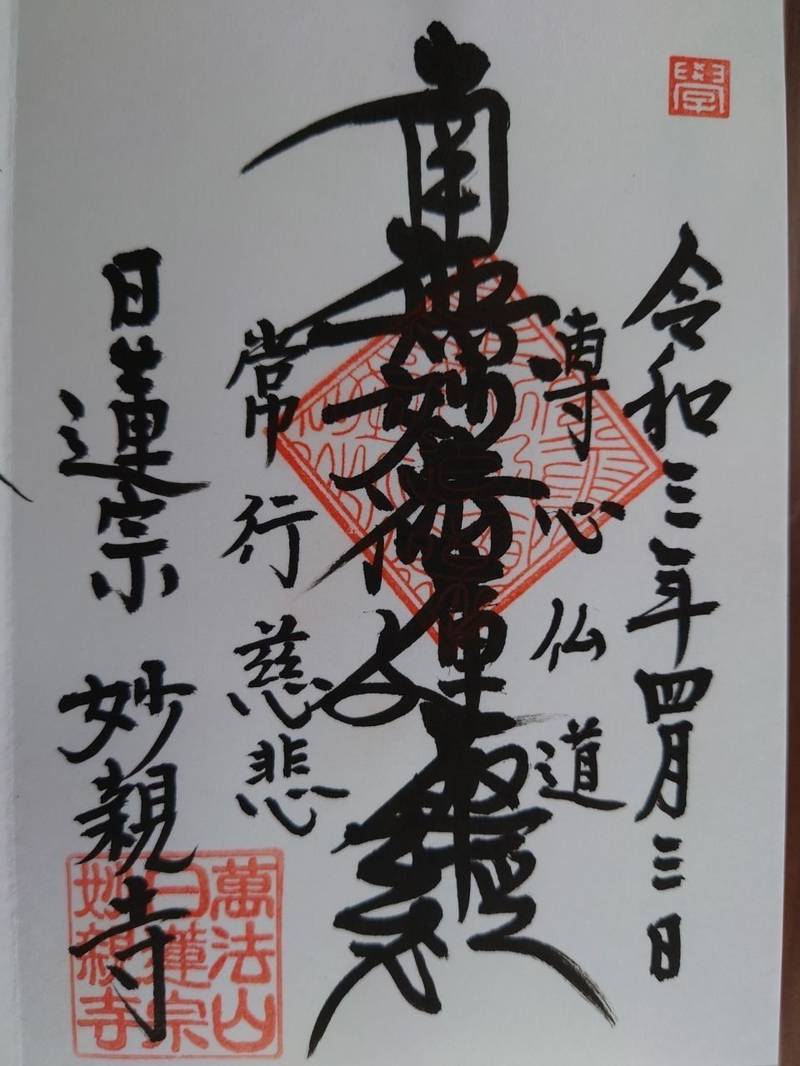 學
令和三年四月三日
専心仏道
南無妙法蓮華経
常行慈悲
日蓮宗 妙親寺
萬法山
日蓮宗
妙親寺